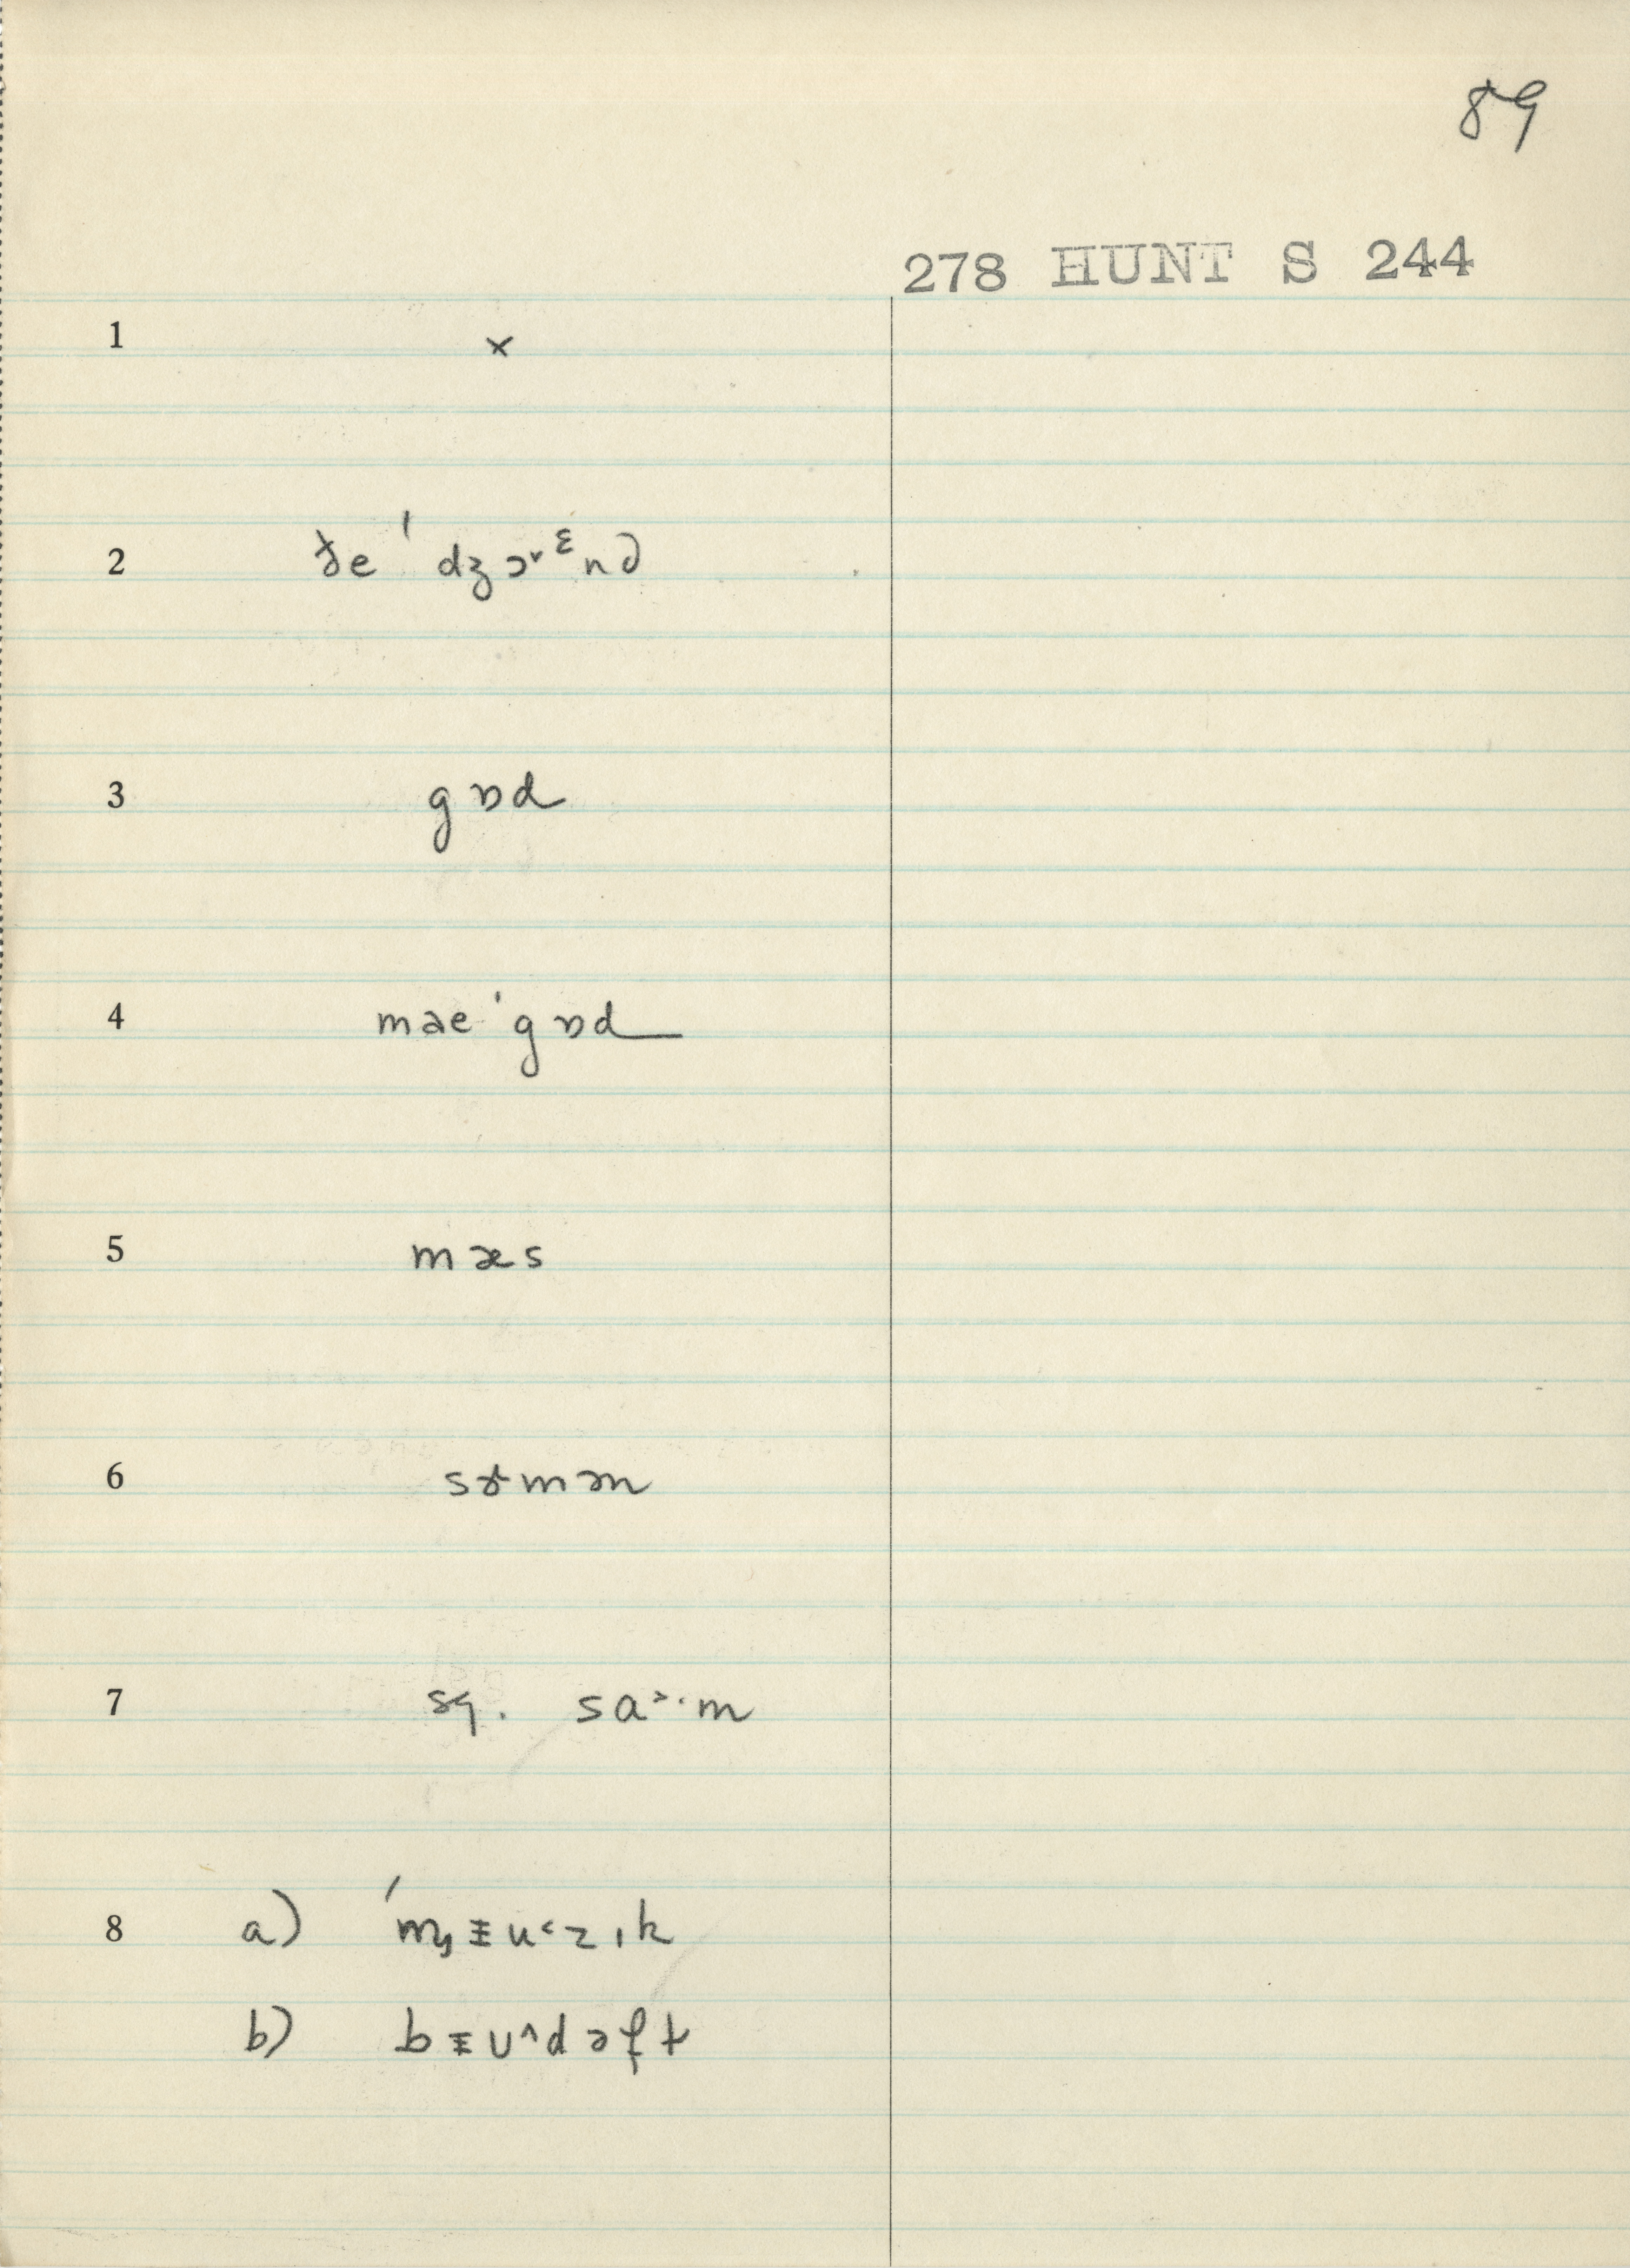 89
278 HUNT S 244
1 ×
2 ðe ˈdʒɔ˅ᵋnə
3 gɒd
4 mae ˈgɒd
5 mæs
6 sɤmən
7 sg. sa˃·m
8 a) ˈmyɪu˂zɪk
b) bɪu˄dəft